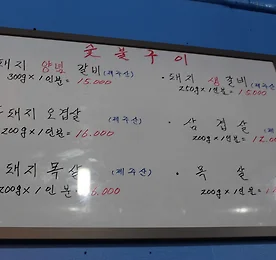 숯불구이
돼지 양념 갈비 (제주산)
300g × 1인분 = 15.000
· 돼지 생갈비
250g × 1인분 = 15.000
돼지 오겹살 (제주산)
200g × 1인분 = 16.000
· 삼겹살
200g × 1인분 = 12.00
돼지 목살 (제주산)
200g × 1인분 = 16.000
· 목살
200g × 1인분 =